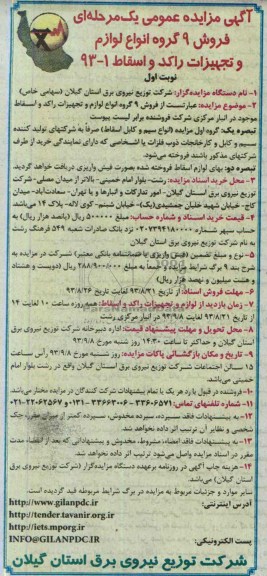 آگهی مزایده عمومی یک‌مرحله‌ای
فروش ۹ گروه انواع لوازم
و تجهیزات راکد و اسقاط ۱-۹۳
نوبت اول
۱- نام دستگاه مزایده‌گزار: شرکت توزیع نیروی برق استان گیلان (سهامی خاص)
۲- موضوع مزایده: عبارتست از فروش ۹ گروه انواع لوازم و تجهیزات راکد و اسقاط
موجود در انبار مرکزی شرکت فروشنده برابر لیست پیوست
تبصره یک: گروه اول مزایده (انواع سیم و کابل اسقاط) صرفاً به شرکتهای تولید کننده
سیم و کابل و کارخانجات ذوب فلزات یا اشخاصی که دارای نمایندگی خرید از طرف
شرکتهای مذکور باشند فروخته می‌شود.
تبصره دو: بهای لوازم اسقاط فروخته شده بصورت فیش واریزی دریافت خواهد گردید.
۳- محل خرید اسناد مزایده: رشت- بلوار امام خمینی- بالاتر از میدان مصلی- شرکت
توزیع نیروی برق استان گیلان- امور تدارکات و انبارها و یا تهران- سعادت‌آباد- میدان
کاج- خیابان شهید خلیان جمشیدی(یک)- خیابان شبنم- کوی لاله- پلاک ۱۴ می‌باشد.
۴- قیمت خرید اسناد و شماره حساب: مبلغ ۵۰۰۰۰۰ ریال (پانصد هزار ریال) به
حساب سپهر شماره نزد بانک صادرات شعبه ۵۴۹ فرهنگ رشت
به نام شرکت توزیع نیروی برق استان گیلان
۵- نوع و مبلغ تضمین (فیش واریزی یا ضمانتنامه بانکی معتبر): شرکت در مزایده به
شرح بند ۹ برگ شرایط مزایده جمعاً به مبلغ ۲۸۸/۹۰۰/۰۰۰ ریال (دویست و هشتاد
و هشت میلیون و نهصد هزار ریال)
۶- مهلت فروش اسناد: از تاریخ ۹۳/۸/۲۱ لغایت ۹۳/۸/۲۶
۷- زمان بازدید از لوازم و تجهیزات راکد و اسقاط: همه‌روزه ساعت ۱۰ لغایت ۱۴
از تاریخ ۹۳/۸/۲۱ لغایت ۹۳/۹/۸ در انبار مرکزی رشت
۸- محل تحویل و مهلت پیشنهاد قیمت: اداره دبیرخانه شرکت توزیع نیروی برق
استان گیلان و حداکثر تا ساعت ۱۴:۳۰ روز شنبه مورخ ۹۳/۹/۸
۹- تاریخ و مکان بازگشائی پاکات مزایده: روز شنبه مورخ ۹۳/۹/۸ رأس ساعت
۱۵ سالن اجتماعات شرکت توزیع نیروی برق استان گیلان واقع در رشت بلوار امام
خمینی می‌باشد.
۱۰- فروشنده در قبول یا رد هر یک یا تمام پیشنهادات شرکت کنندگان در مزایده مختار می‌باشد.
۱۱- شماره تلفنهای تماس:
۱۲- به پیشنهادات فاقد سپرده، سپرده مخدوش، سپرده کمتر از میزان مقرر، چک
شخصی و نظایر آن ترتیب اثر داده نخواهد شد.
۱۳- به پیشنهادات فاقد امضاء، مشروط، مخدوش و پیشنهاداتی که بعد از انقضاء مدت
مقرر در اسناد مزایده واصل می‌شود ترتیب اثر داده نخواهد شد.
۱۴- هزینه چاپ آگهی در روزنامه برعهده دستگاه مزایده‌گزار (شرکت توزیع نیروی برق
استان گیلان) می‌باشد.
سایر موارد و جزئیات مربوط به مزایده در برگ شرایط مربوطه قید گردیده است.
آدرس اینترنتی: http://www.gilanpdc.ir
http://tender.tavanir.org.ir
http://iets.mporg.ir
پست الکترونیکی: INFO@GILANPDC.IR
شرکت توزیع نیروی برق استان گیلان